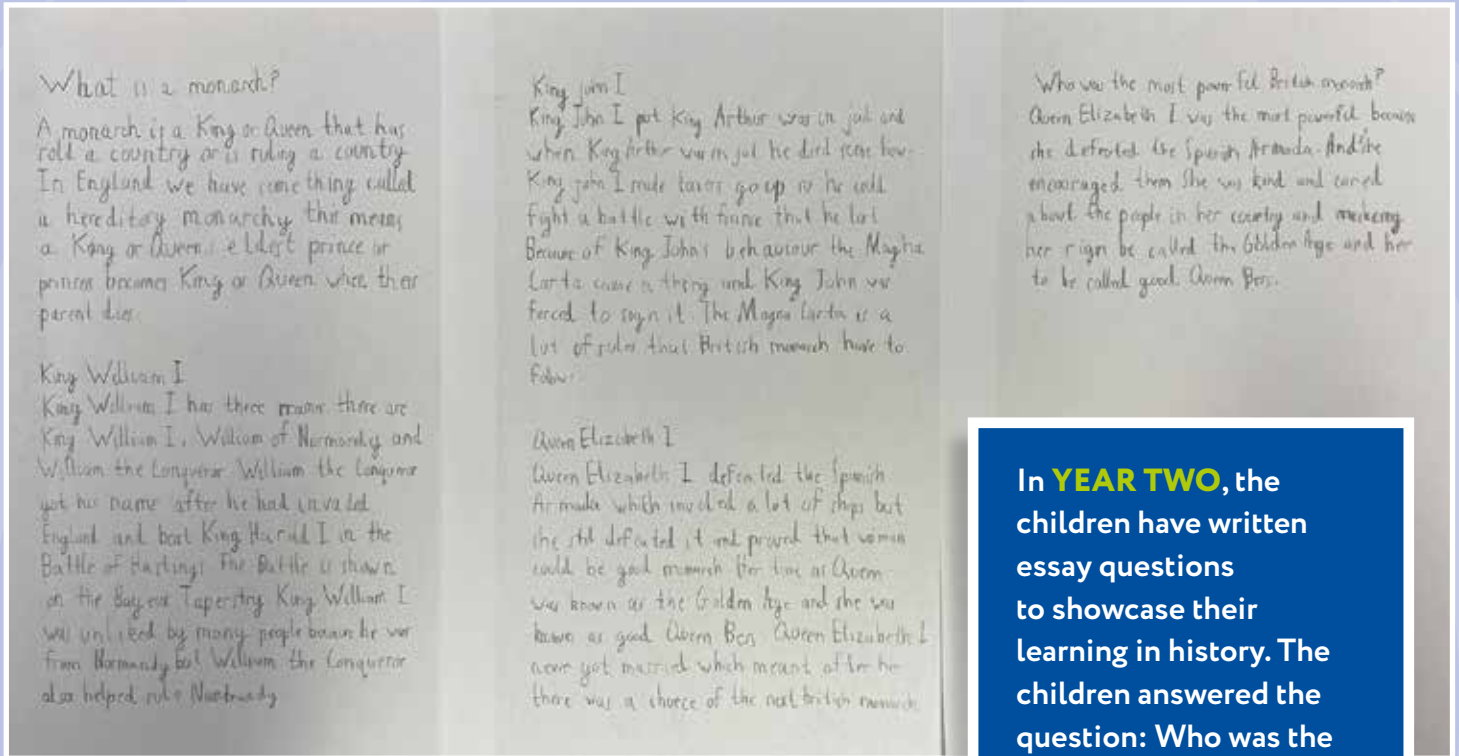 What is a monarch?
A monarch is a King or Queen that has
rold a country or is ruling a country
In England we have some thing called
a hereditory monarchy this means
a King or Queens eldest prince or
princes becomes King or Queen when their
parent dies.
King William I
King William I has three names there are
King William I, William of Normandy and
William the Conqueror William the Conqueror
got his name after he had invaded
England and beat King Harold I in the
Battle of Hastings The Battle is shown
on the Bayeux Taperstry King William I
was unliked by many people because he was
from Normandy but William the Conqueror
also helped rule Normandy
King John I
King John I put King Arthur was in jail and
when King Arthur was in jail he died some how.
King John I made taxes go up so he could
fight a battle with france that he lost
Because of King John's behaviour the Magna
Carta came a thing and King John was
forced to sign it. The Magna Carta is a
lot of rules that British monarch have to
folow.
Queen Elizabeth I
Queen Elizabeth I defeated the Spanish
Armada which involved a lot of ships but
she still defeated it and proved that woman
could be good monarch Her time as Queen
was known as the Golden Age and she was
known as good Queen Bess Queen Elizabeth I
never got married which meant after he
there was a choice of the next british monarch
Who was the most power ful British monarch?
Queen Elizabeth I was the most powerful because
she defeated the Spanish Armada. And she
encouraged them She was kind and cared
about the people in her country and
her rign be called the Golden Age and her
to be called good Queen Bess.
In YEAR TWO, the
children have written
essay questions
to showcase their
learning in history. The
children answered the
question: Who was the